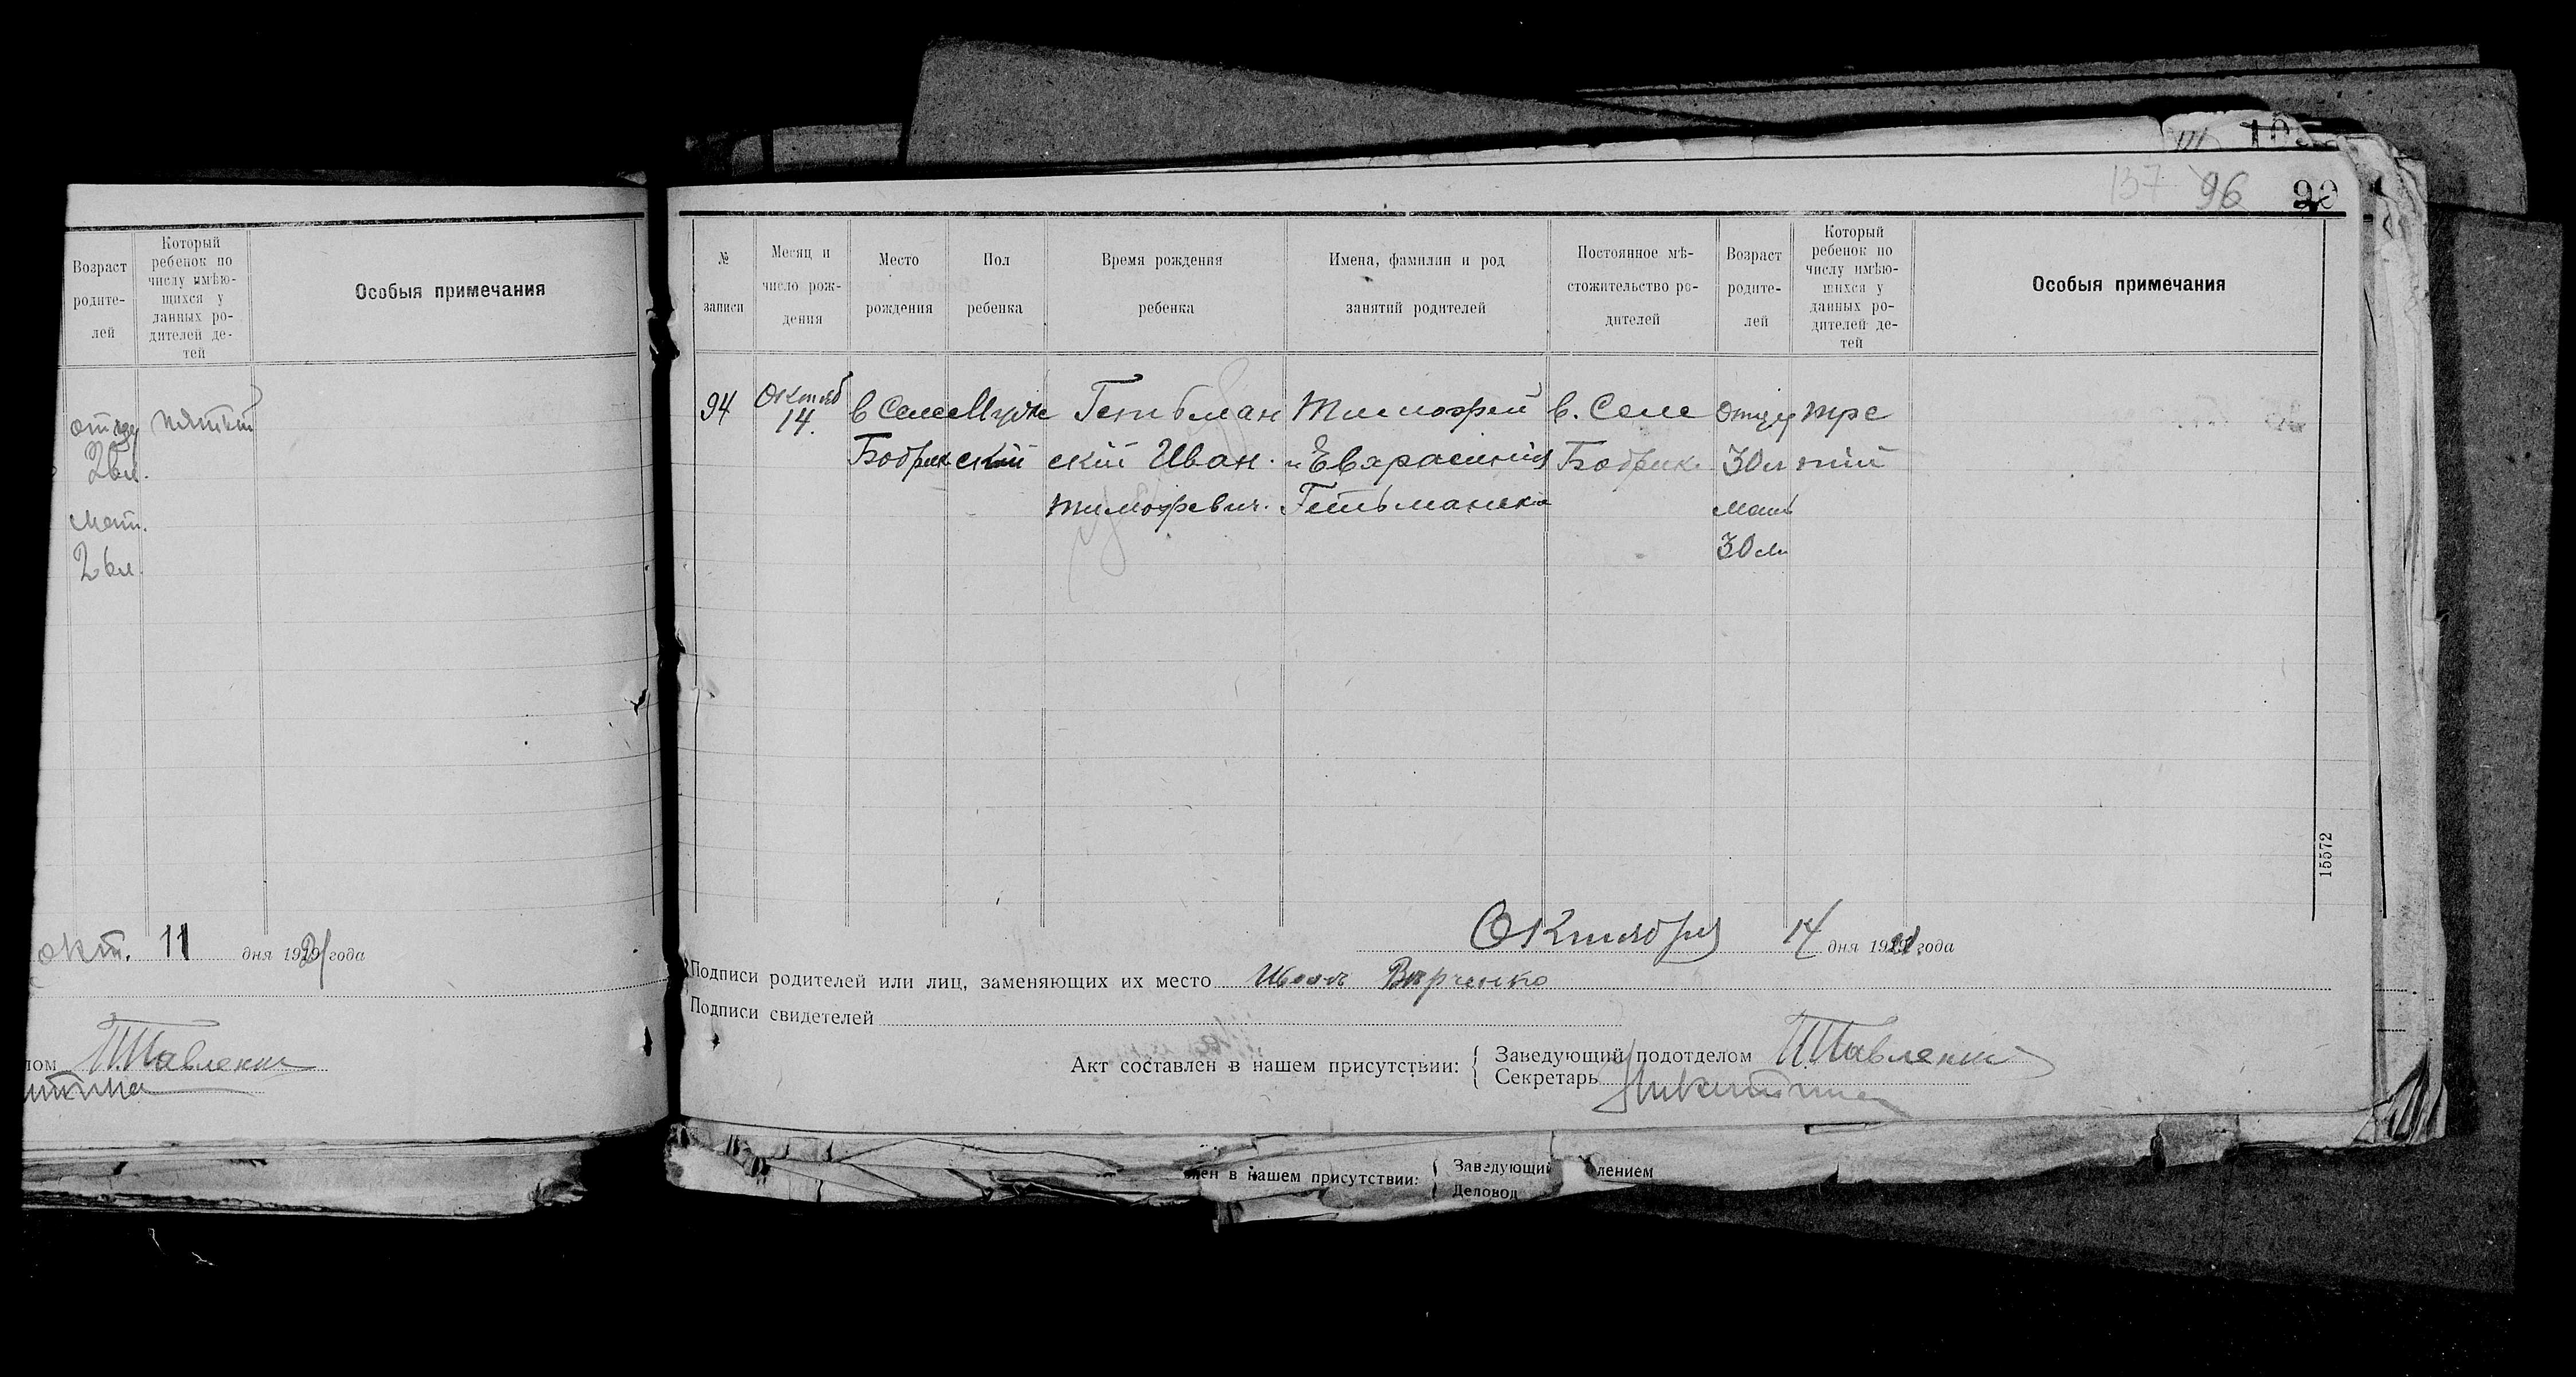 Возраст
родите-
лей
Который
ребенок по
числу имѣю-
щихся у
данных ро-
дителей де-
тей
Особыя примечания
отцу пятый
26 л.
мат.
26 л.
окт. 11 дня 1921 года
лом П Павленко
итина
137 96 90
№
записи
Месяц и
число рож-
дения
Место
рождения
Пол
ребенка
Время рождения
ребенка
Имена, фамилии и род
занятий родителей
Постоянное мѣ-
стожительство ро-
дителей
Возраст
родите-
лей
Который
ребенок по
числу имѣю-
щихся у
данных ро-
дителей де-
тей
Особыя примечания
94 Октяб в Селе Муже Гетьман Тимофей в. Селе отцу тре
14. Бобрик ский ский Иван. и Евфросиния Бобрик. 30 л тий
Тимофевич. Гетьманска мать
30 л
15572
Октября 14 дня 1921 года
Подписи родителей или лиц, заменяющих их место Иванъ Вѣрченко
Подписи свидетелей
Акт составлен в нашем присутствии: { Заведующий подотделом П Павленко
Секретарь Никитина
лен в нашем присутствии: { Заведующий лением
Деловод